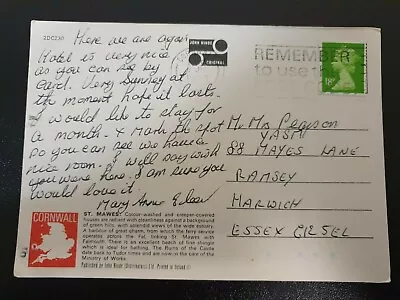 2DC230
Here we are again
Hotel is very nice
as you can see by
card. Very sunny at
the moment hope it lasts.
I would like to stay for
a month. X Marks the spot
so you can see we have a
nice room. I will say wish
you were here. I am sure you
would love it.
Mary Anne
JOHN HINDE
ORIGINAL
REMEMBER
to use the
18P
Mr Mrs Pearson
88 MAYES LANE
RAMSEY
HARWICH
ESSEX
CORNWALL
ST. MAWES: Colour-washed and creeper-covered
houses are radiant with cleanliness against a background
of green hills, with splendid views of the wide estuary.
A harbour of great charm, from which the ferry service
operates across the Fal, linking St. Mawes with
Falmouth. There is an excellent beach of fine shingle
which is ideal for bathing. The Ruins of the Castle
date back to Tudor times and are now in the care of the
Ministry of Works.
Published by John Hinde (Distributors) Ltd. Printed in Ireland